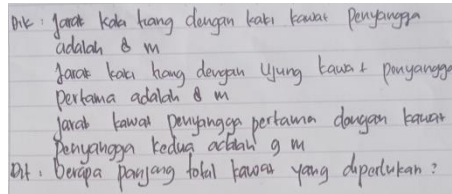 Dik : Jarak kaki tiang dengan kaki kawat Penyangga
adalah 8 m
Jarak kaki tiang dengan Ujung kawat penyangga
Pertama adalah 8 m
Jarak kawat Penyangga pertama dengan kawat
Penyangga kedua adalah 9 m
Dit : berapa panjang total kawat yang diperlukan ?